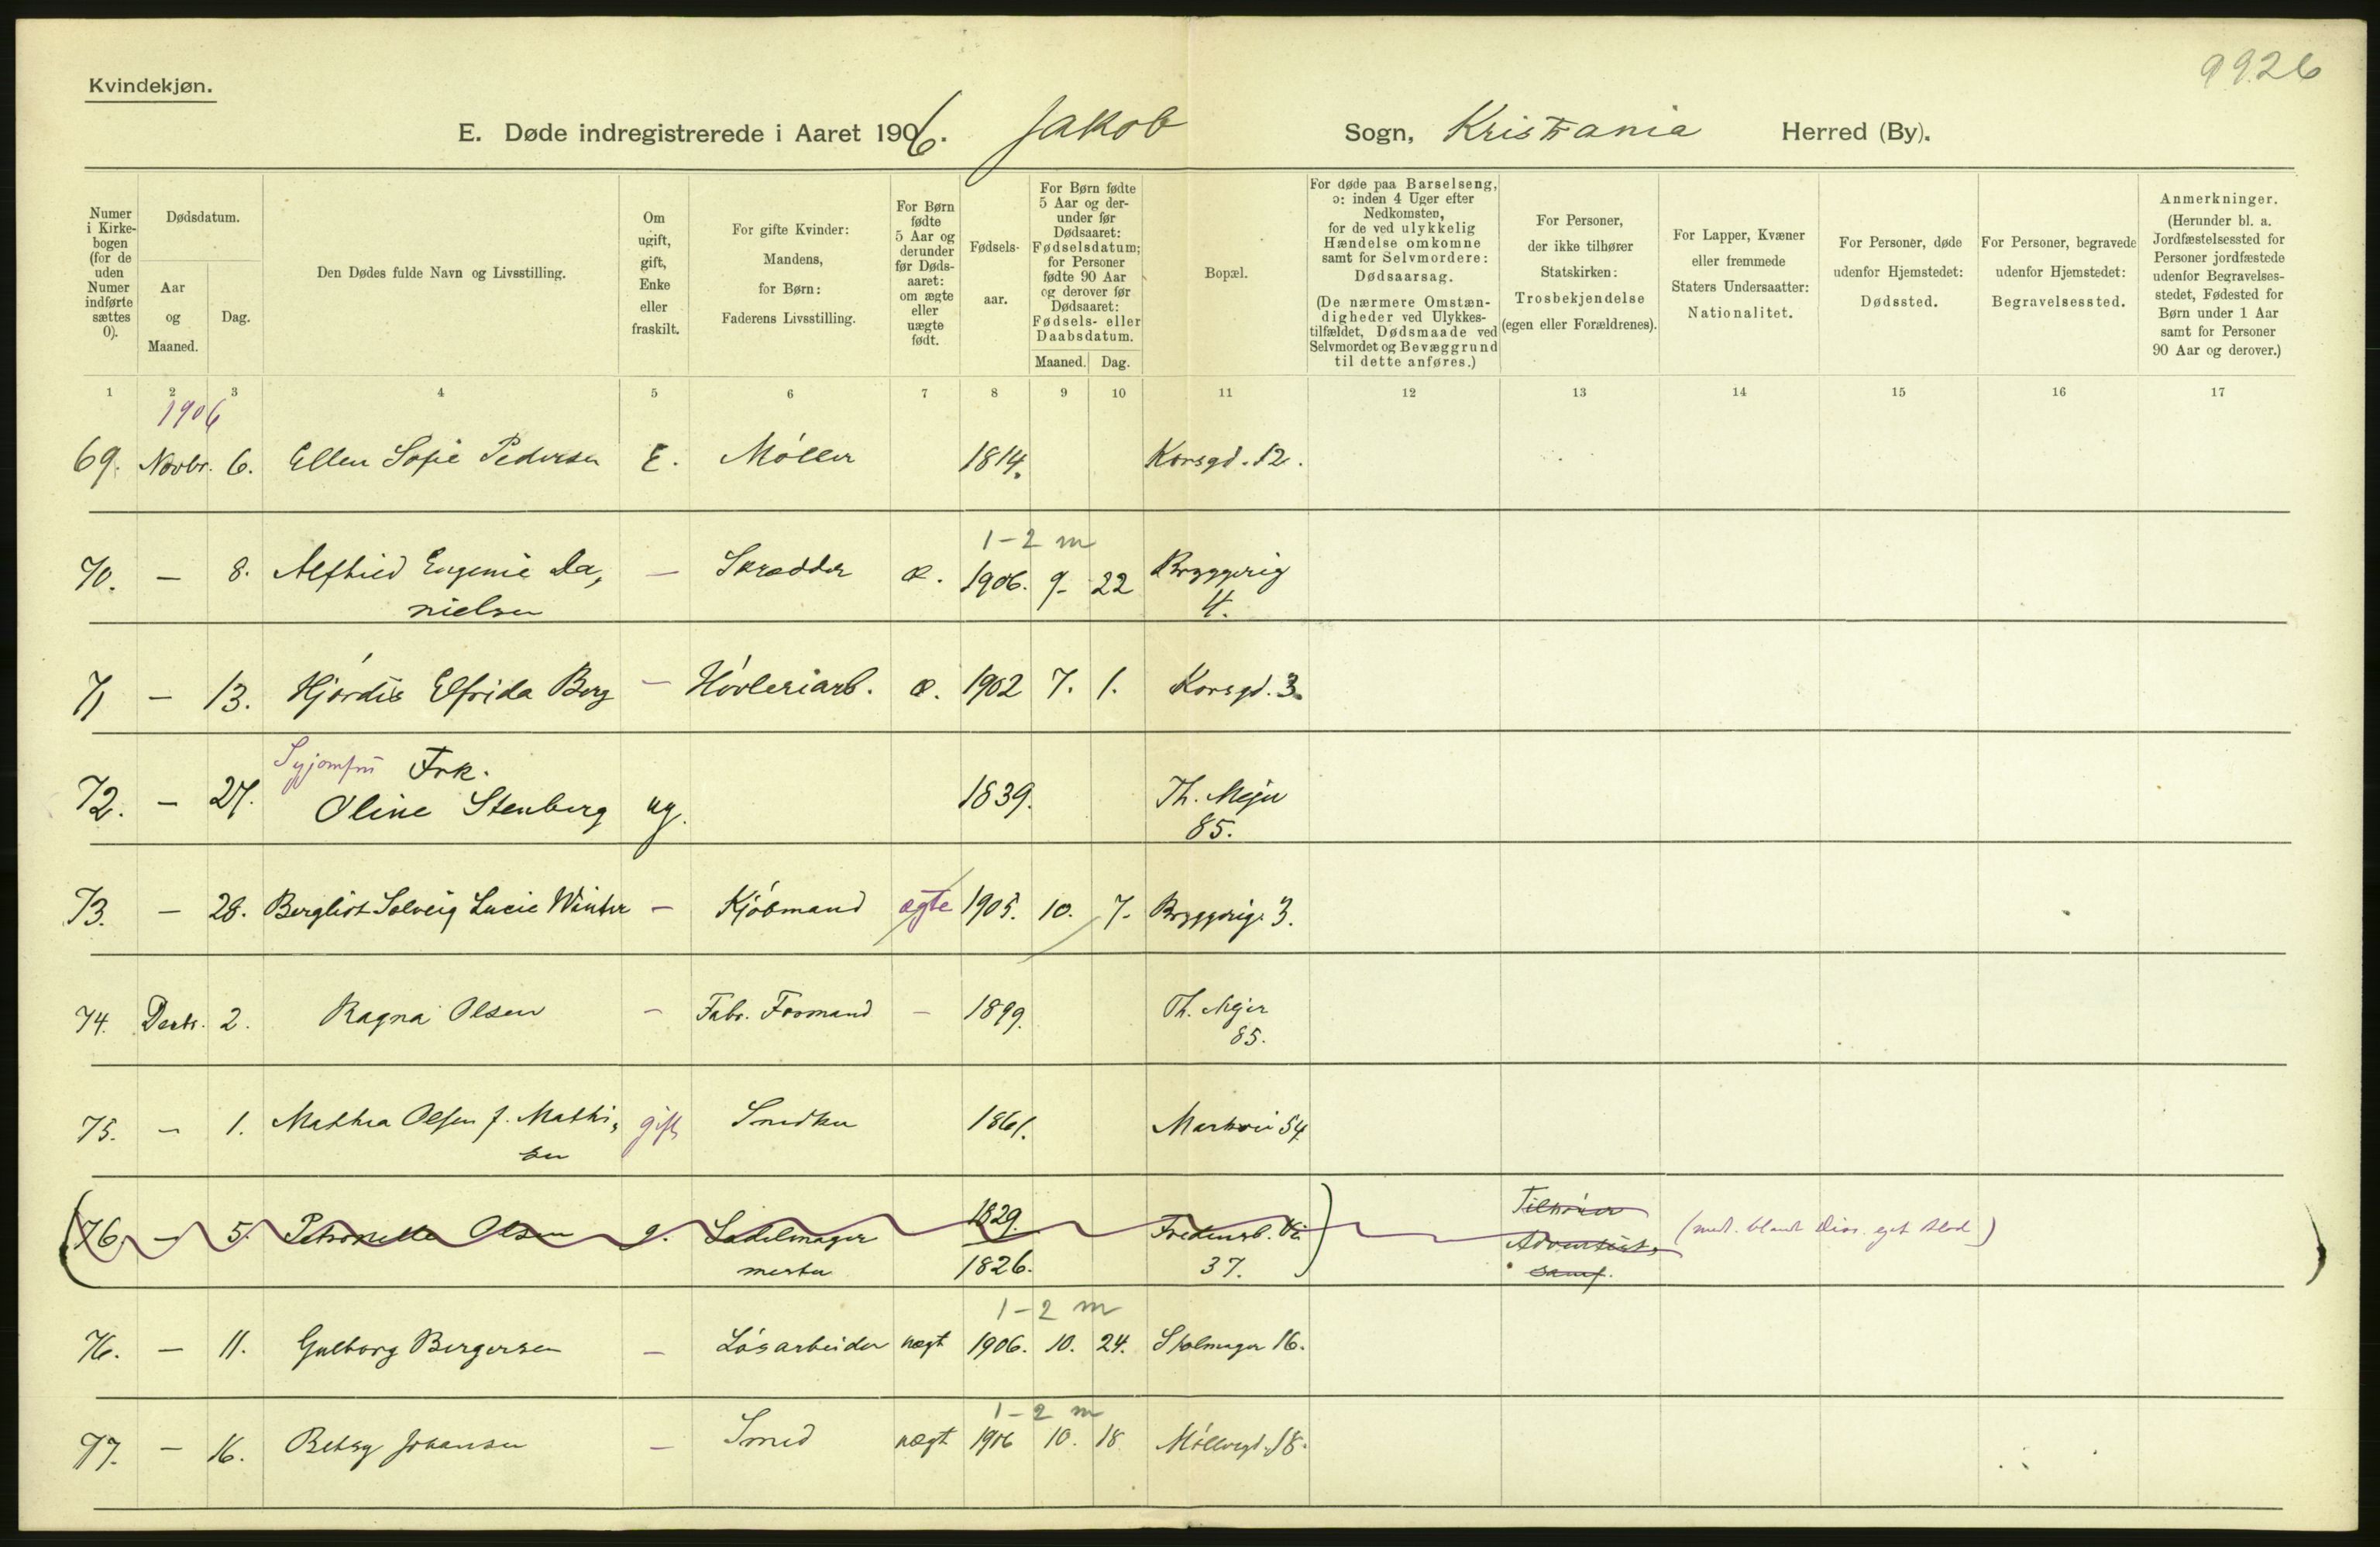 9926
Kvindekjøn.
E. Døde indregistrerede i Aaret 1906. Jakob Sogn, Kristiania Herred (By).
Numer i Kirkebogen (for de uden Numer indførte sættes 0).
Dødsdatum.
Aar og Maaned.
Dag.
Den Dødes fulde Navn og Livsstilling.
Om ugift, gift, Enke eller fraskilt.
For gifte Kvinder: Mandens, for Børn: Faderens Livsstilling.
For Børn fødte 5 Aar og derunder før Dødsaaret: om ægte eller uægte født.
Fødselsaar.
For Børn fødte 5 Aar og derunder før Dødsaaret: Fødselsdatum; for Personer fødte 90 Aar og derover før Dødsaaret: Fødsels- eller Daabsdatum.
Maaned. Dag.
Bopæl.
For døde paa Barselseng, ɔ: inden 4 Uger efter Nedkomsten, for de ved ulykkelig Hændelse omkomne samt for Selvmordere: Dødsaarsag.
(De nærmere Omstændigheder ved Ulykkestilfældet, Dødsmaade ved Selvmordet og Bevæggrund til dette anføres.)
For Personer, der ikke tilhører Statskirken: Trosbekjendelse (egen eller Forældrenes).
For Lapper, Kvæner eller fremmede Staters Undersaatter: Nationalitet.
For Personer, døde udenfor Hjemstedet: Dødssted.
For Personer, begravede udenfor Hjemstedet: Begravelsessted.
Anmerkninger.
(Herunder bl. a. Jordfæstelsessted for Personer jordfæstede udenfor Begravelsesstedet, Fødested for Børn under 1 Aar samt for Personer 90 Aar og derover.)
1 2 3 4 5 6 7 8 9 10 11 12 13 14 15 16 17
1906
69. Novbr. 6. Ellen Sofie Pedersen E. Møller 1814. Korsgd. 12.
1-2 m
70. — 8. Alfhild Eugenie Da, — Skrædder æ. 1906. 9. 22 Bryggerig
nielsen 4.
71 — 13. Hjørdis Elfrida Berg — Høvleriarb. æ. 1902 7. 1. Korsgd. 3.
Syjomfru Frk.
72. — 27. Oline Stenberg ug. 1839. Th. Mejer
85.
73. — 28. Bergliot Solveig Lucie Winter — Kjøbmand ægte 1905. 10. 7. Bryggerig. 3.
74. Decbr. 2. Ragna Olsen — Fabr. Formand — 1899. Th. Mejer
85.
75. — 1. Mathea Olsen f. Mathi, gift Snedker 1861. Markvei 54
sen
(76. — 5. Petronelle Olsen g. Sadelmager 1829. Fredensb. Vei Tilhører
mester 1826. 37.) Adventist,
samf.
76. — 11. Gulborg Bergersen — Løsarbeider uægt 1906. 10. 24. Skolmager 16.
1-2 m
77. — 16. Betsy Johansen — Smed uægt 1906 10. 18 Møllergd. 18.
1-2 m